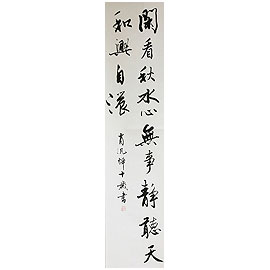 閑看秋水心無事靜聽天
和興自濃
肖凡坤十歲書